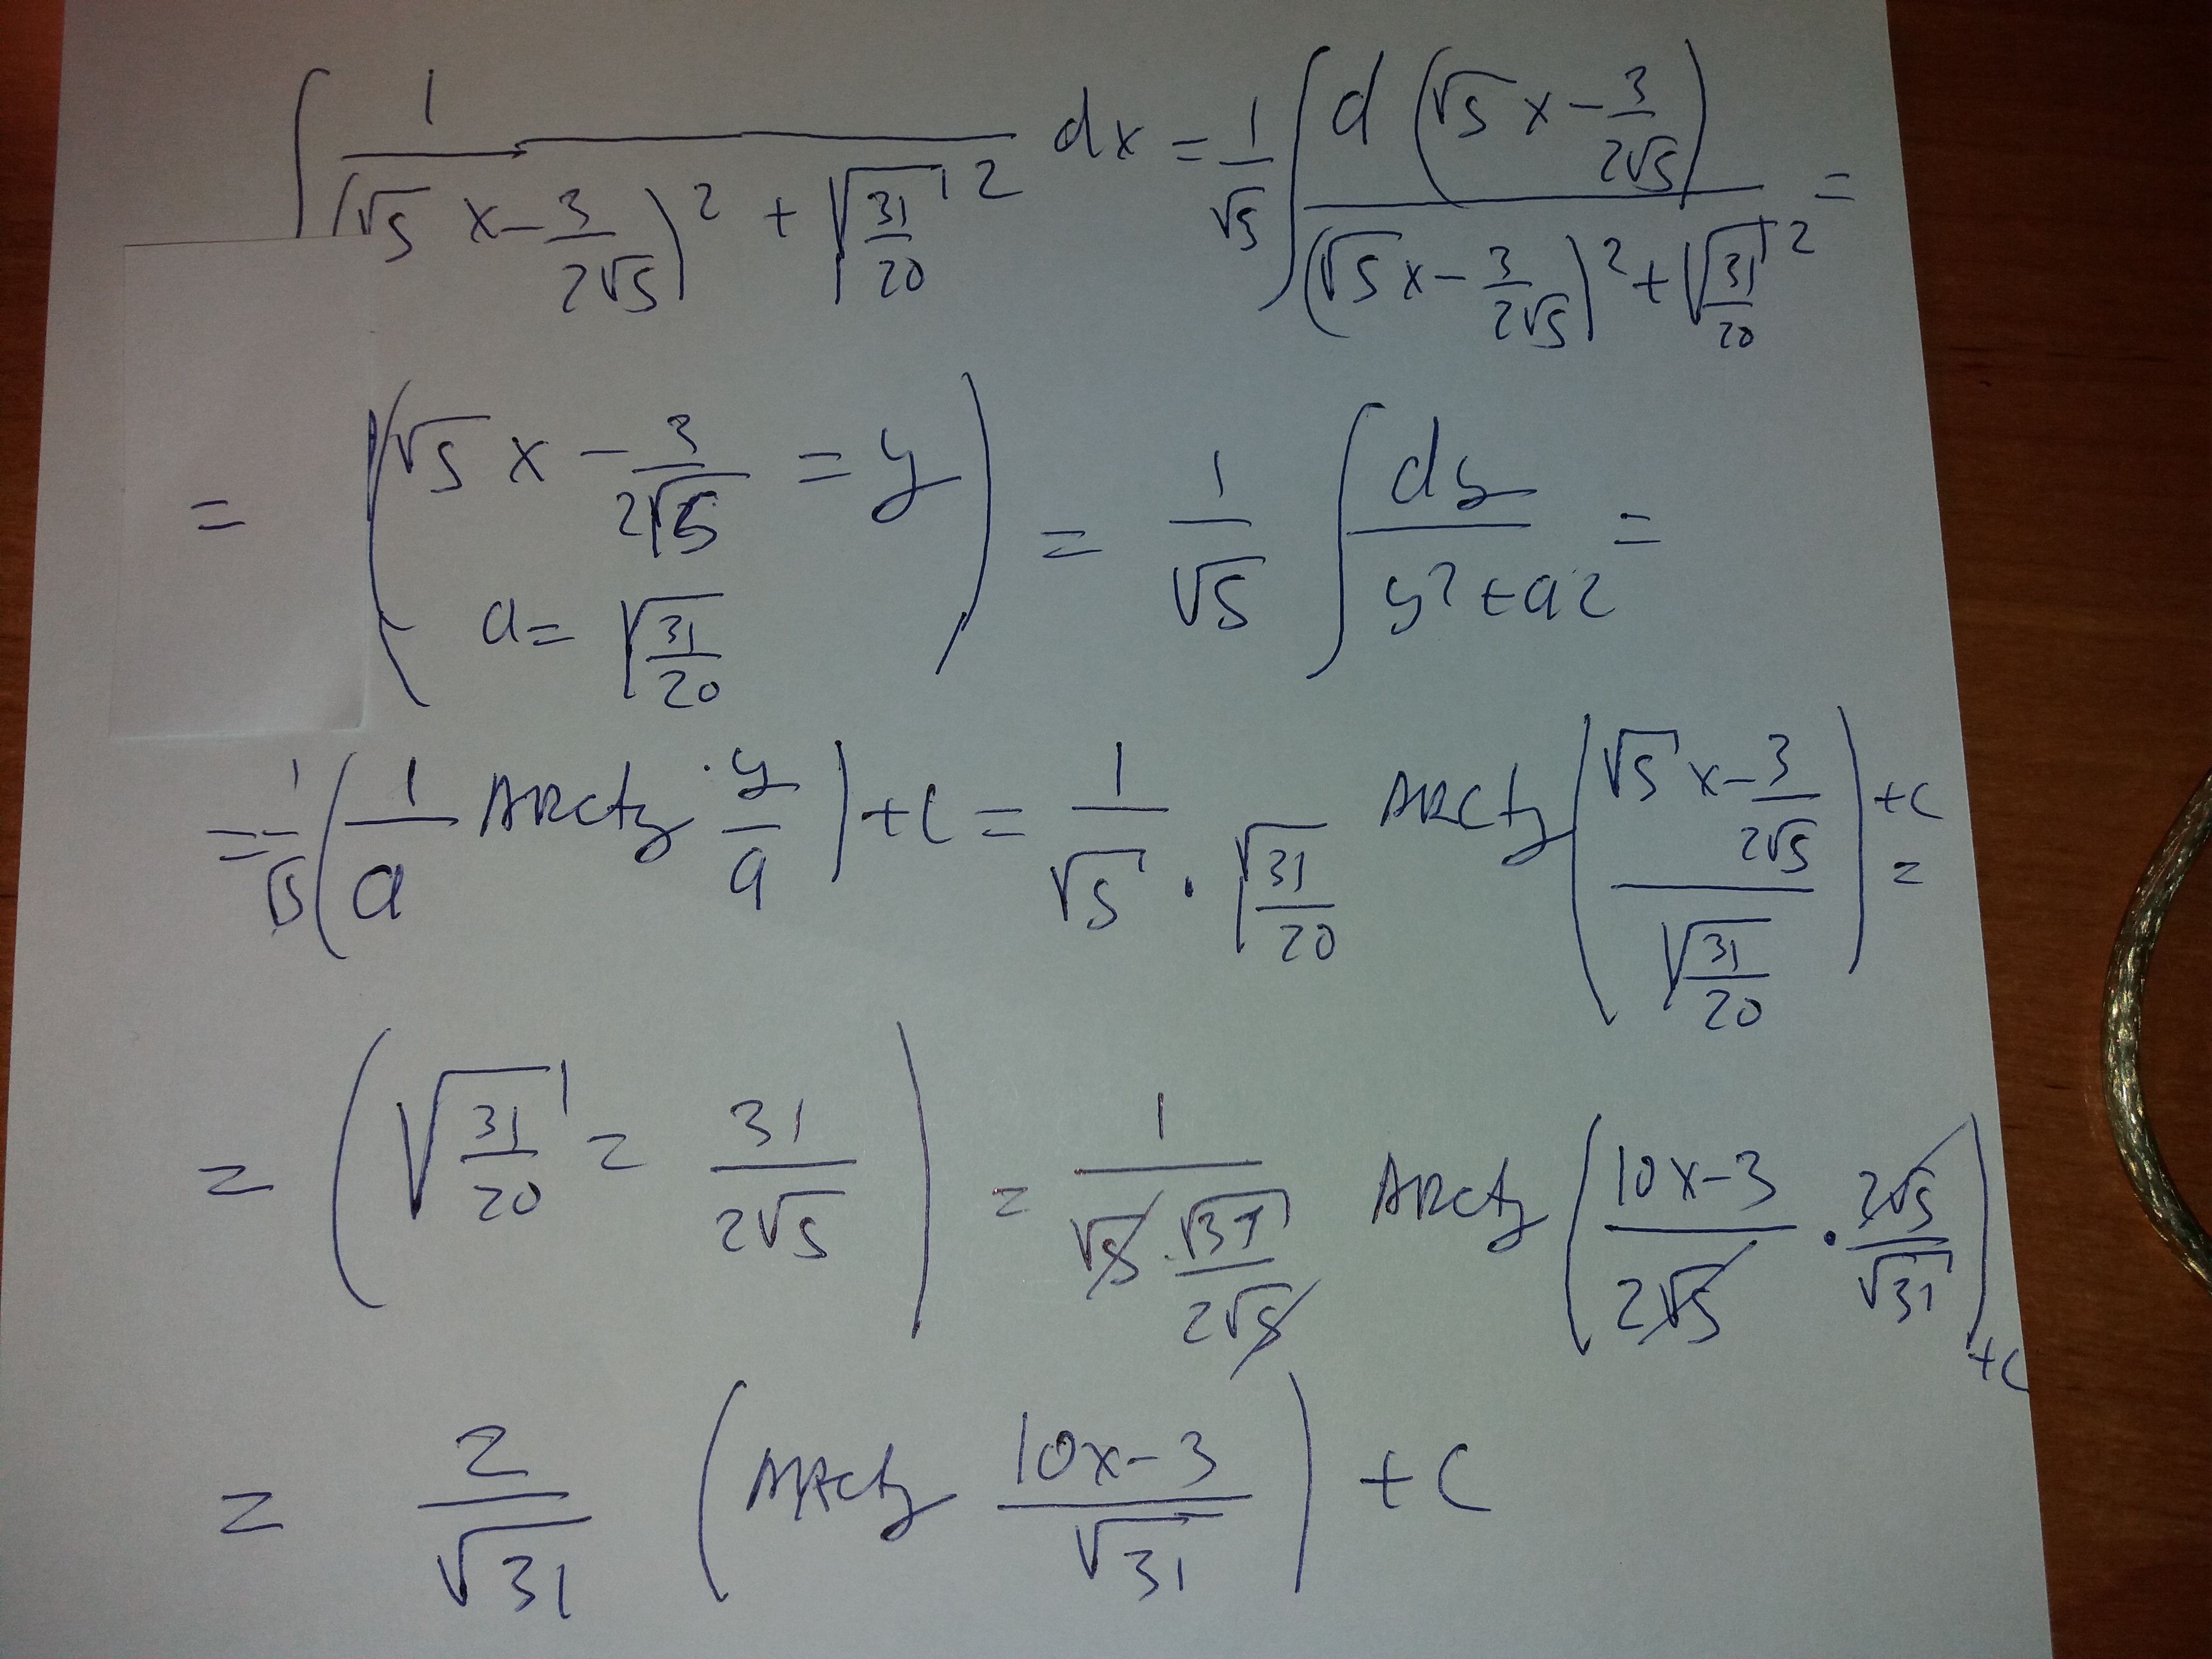 ∫ 1/((√5 x - 3/(2√5))² + √(31/20)²) dx = 1/√5 ∫ d(√5 x - 3/(2√5))/((√5 x - 3/(2√5))² + √(31/20)²) =
= (√5 x - 3/(2√5) = y
a = √(31/20)) = 1/√5 ∫ dy/(y² + a²) =
= 1/√5 (1/a ARctg y/a) + C = 1/(√5 · √(31/20)) ARctg((√5 x - 3/(2√5))/√(31/20)) + C =
= (√(31/20) = 31/(2√5)) = 1/(√5 · √31/(2√5)) ARctg((10x - 3)/(2√5) · 2√5/√31) + C
= 2/√31 (ARctg (10x - 3)/√31) + C